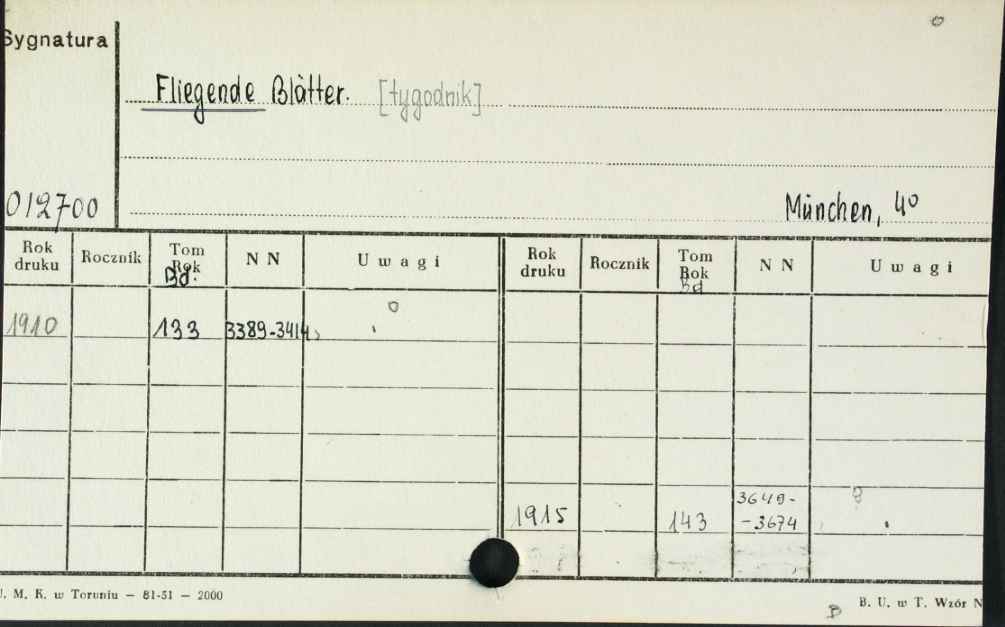 Sygnatura
Fliegende Blätter. [tygodnik]
012700
München, 4°
Rok druku Rocznik Tom Rok Bd. N N Uwagi Rok druku Rocznik Tom Rok Bd N N Uwagi
1910 133 3389-3414
3649-
1915 143 -3674
U. M. K. w Toruniu — 81-51 — 2000
B. U. w T. Wzór N